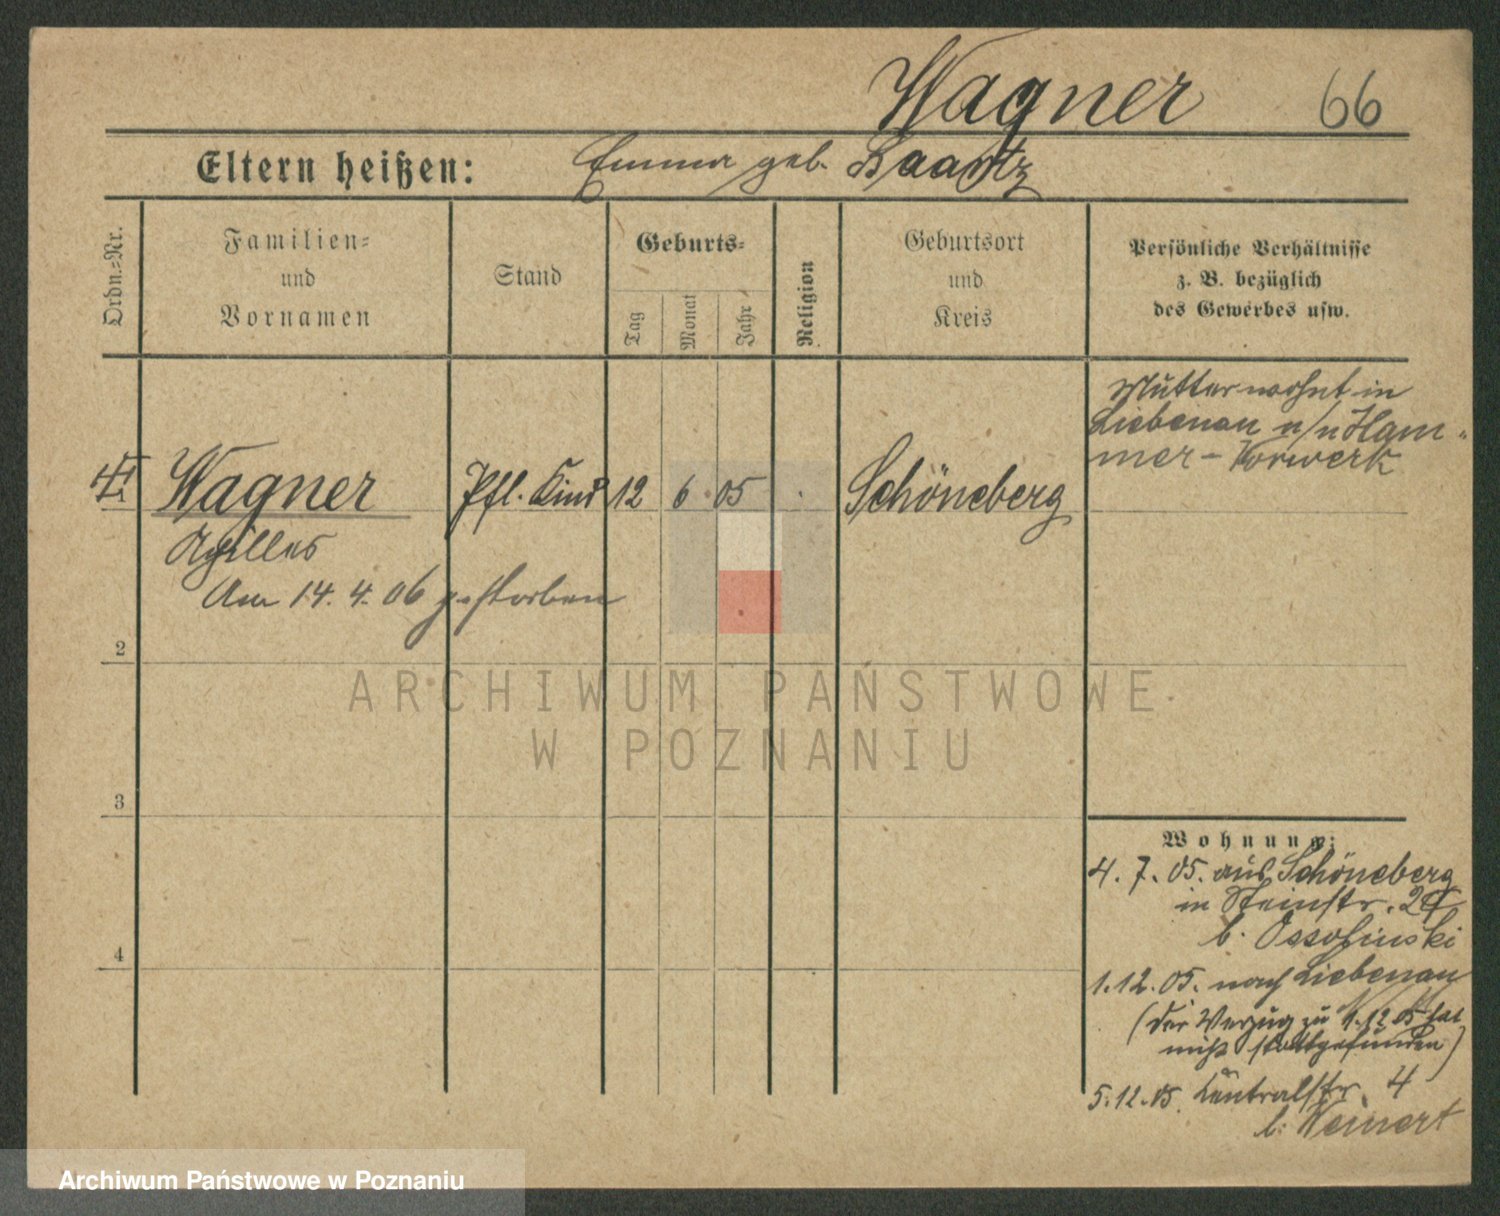 Wagner 66
Eltern heißen: Emma geb. Baartz
Ordn.-Nr.
Familien-
und
Vornamen
Stand
Geburts-
Tag
Monat
Jahr
Religion
Geburtsort
und
Kreis
Persönliche Verhältnisse
z. B. bezüglich
des Gewerbes usw.
Mutter wohnt in
Liebenau u/u Ham-
mer-Vorwerk
Wagner Pfl. Kind 12 6. 05 Schöneberg
Achilles
Am 14. 4. 06 gestorben
2
3
4
Wohnung:
4. 7. 05. aus Schöneberg
in Steinstr.
b. Ossolinski
1.12.05. nach Liebenau
(der Verzug zu 1.12.05 hat
nicht stattgefunden)
5.12.05. Centralstr. 4
b. Weinert
ARCHIWUM PAŃSTWOWE
W POZNANIU
Archiwum Państwowe w Poznaniu